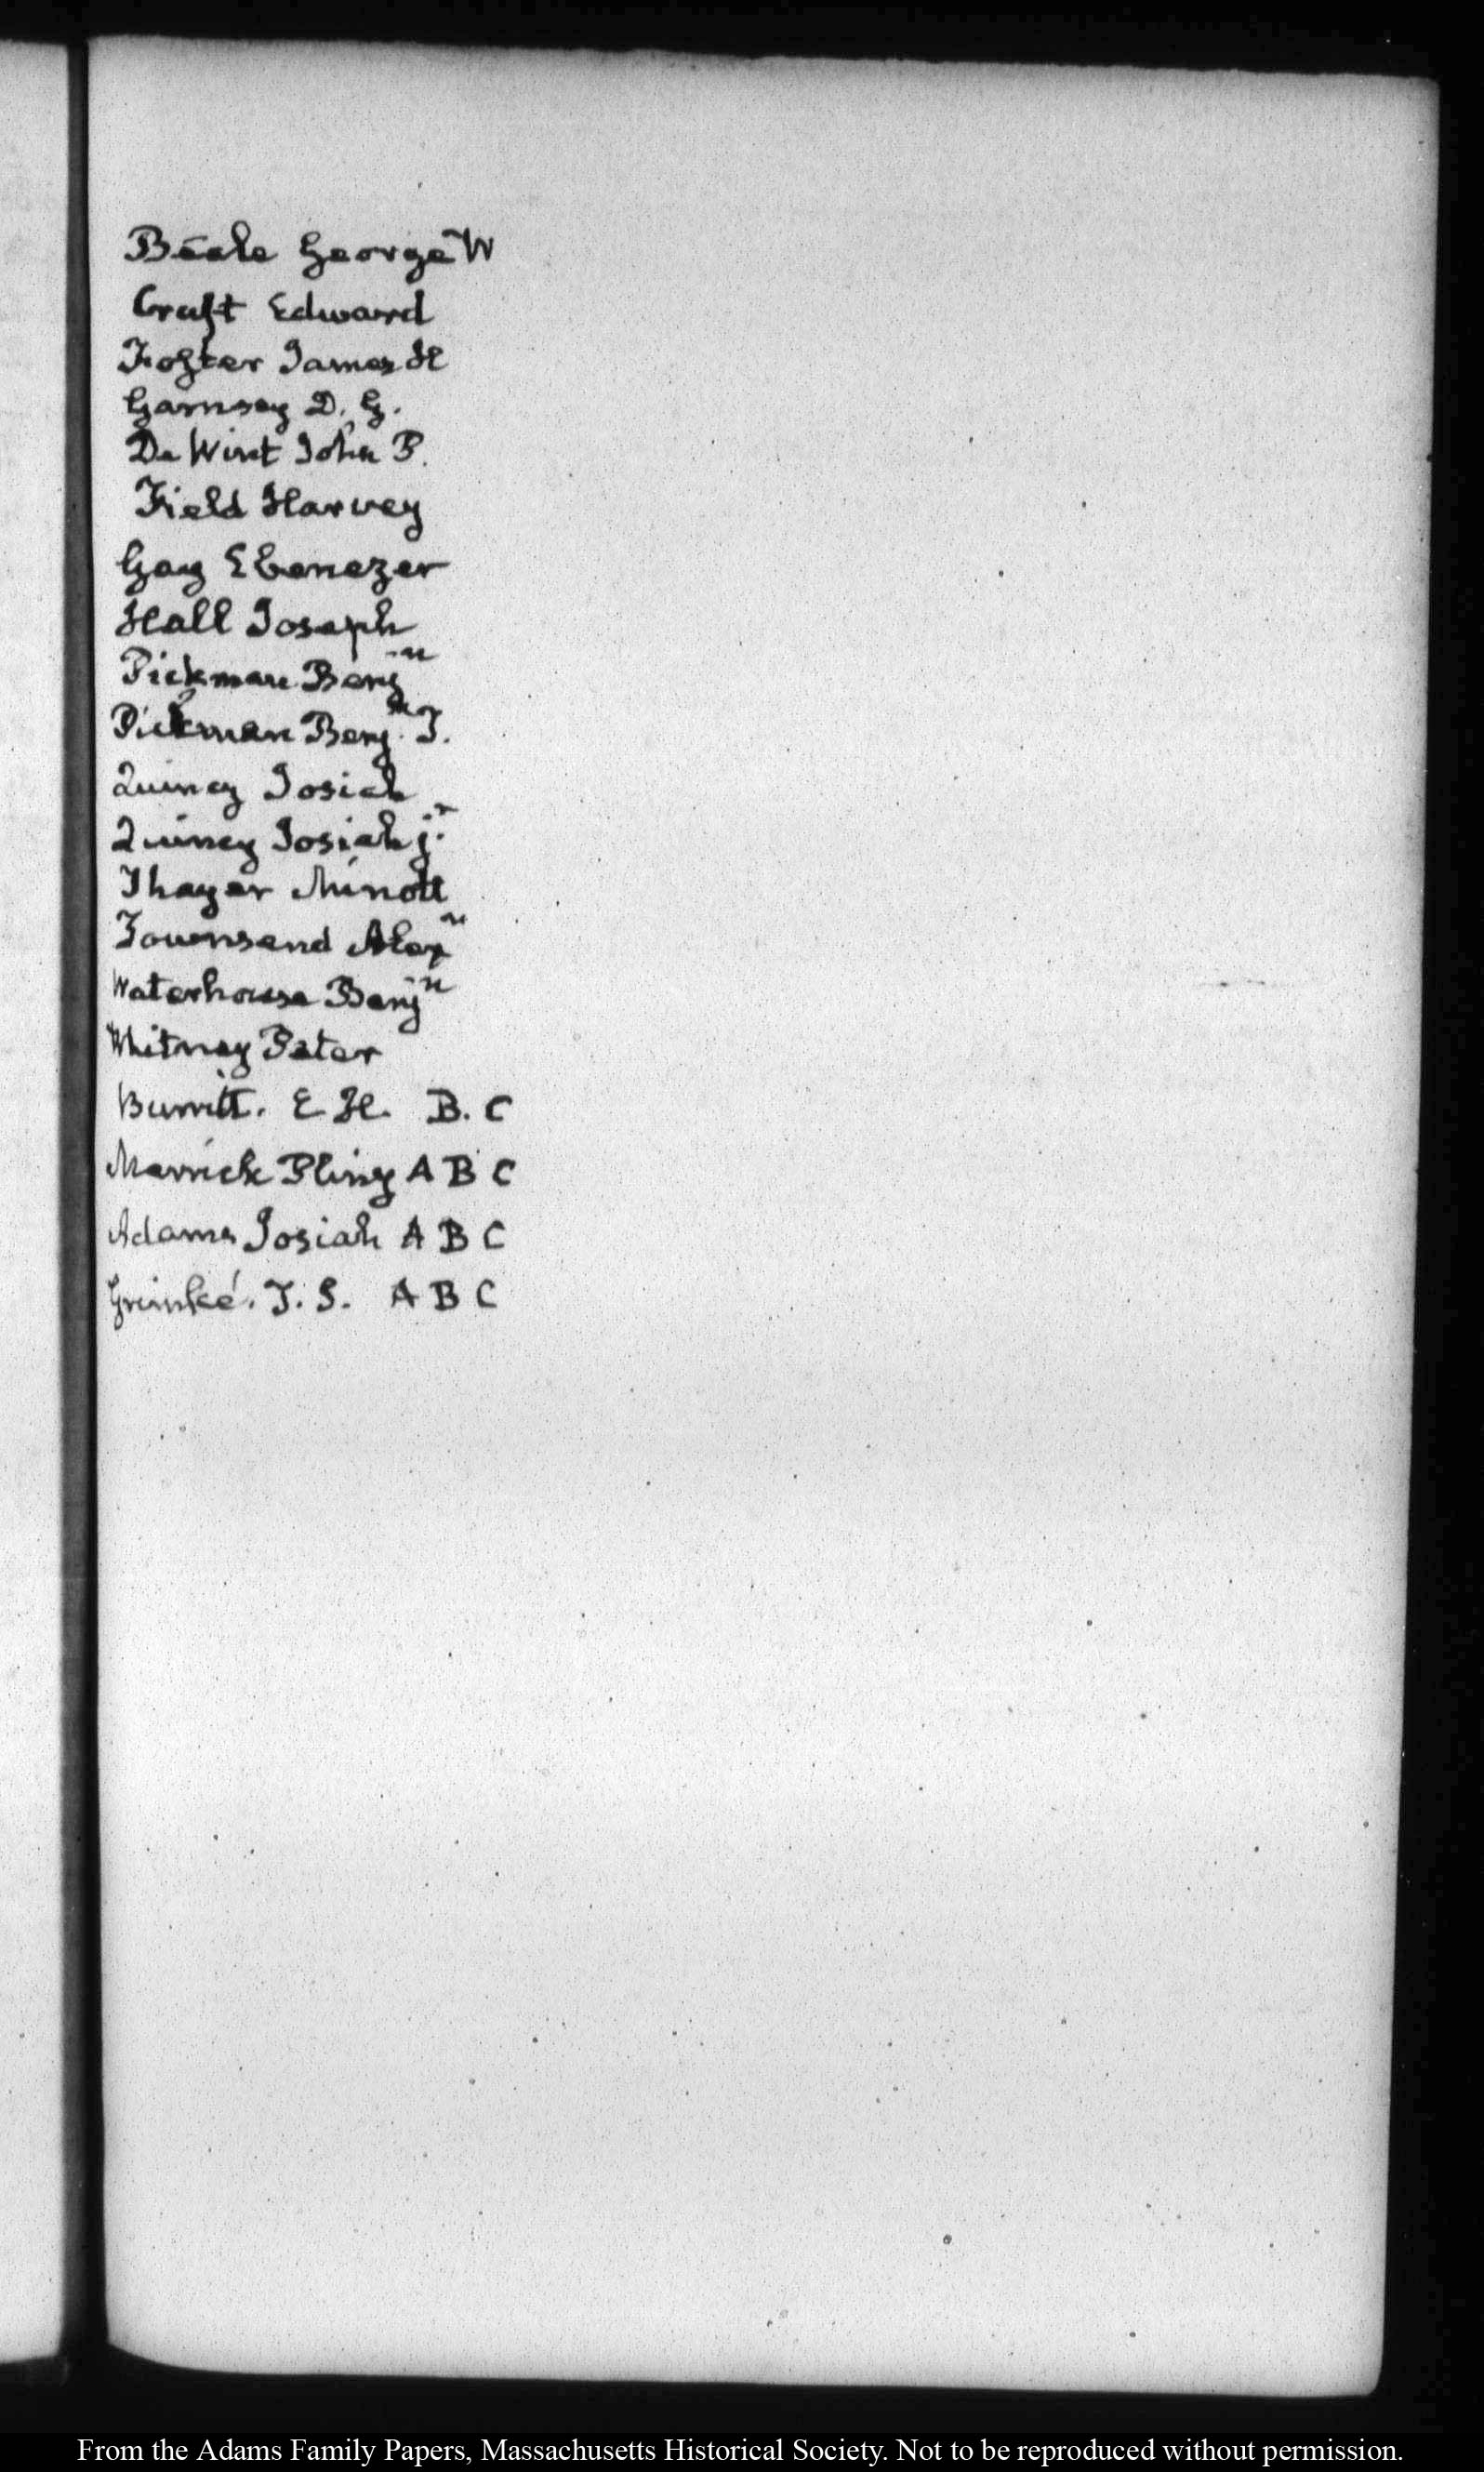 Beale George W
Craft Edward
Foster James H
Garnsey D. G.
De Wint John P.
Field Harvey
Gay Ebenezer
Hall Joseph
Pickman Benj.n
Pickman Benj.n T.
Quincy Josiah
Quincy Josiah j.r
Thayer Minott
Townsend Alex.n
Waterhouse Benj.n
Whitney Peter
Burritt. E H. B. C
Merrick Pliny A B C
Adams Josiah A B C
Grimké. T. S. A B C
From the Adams Family Papers, Massachusetts Historical Society. Not to be reproduced without permission.